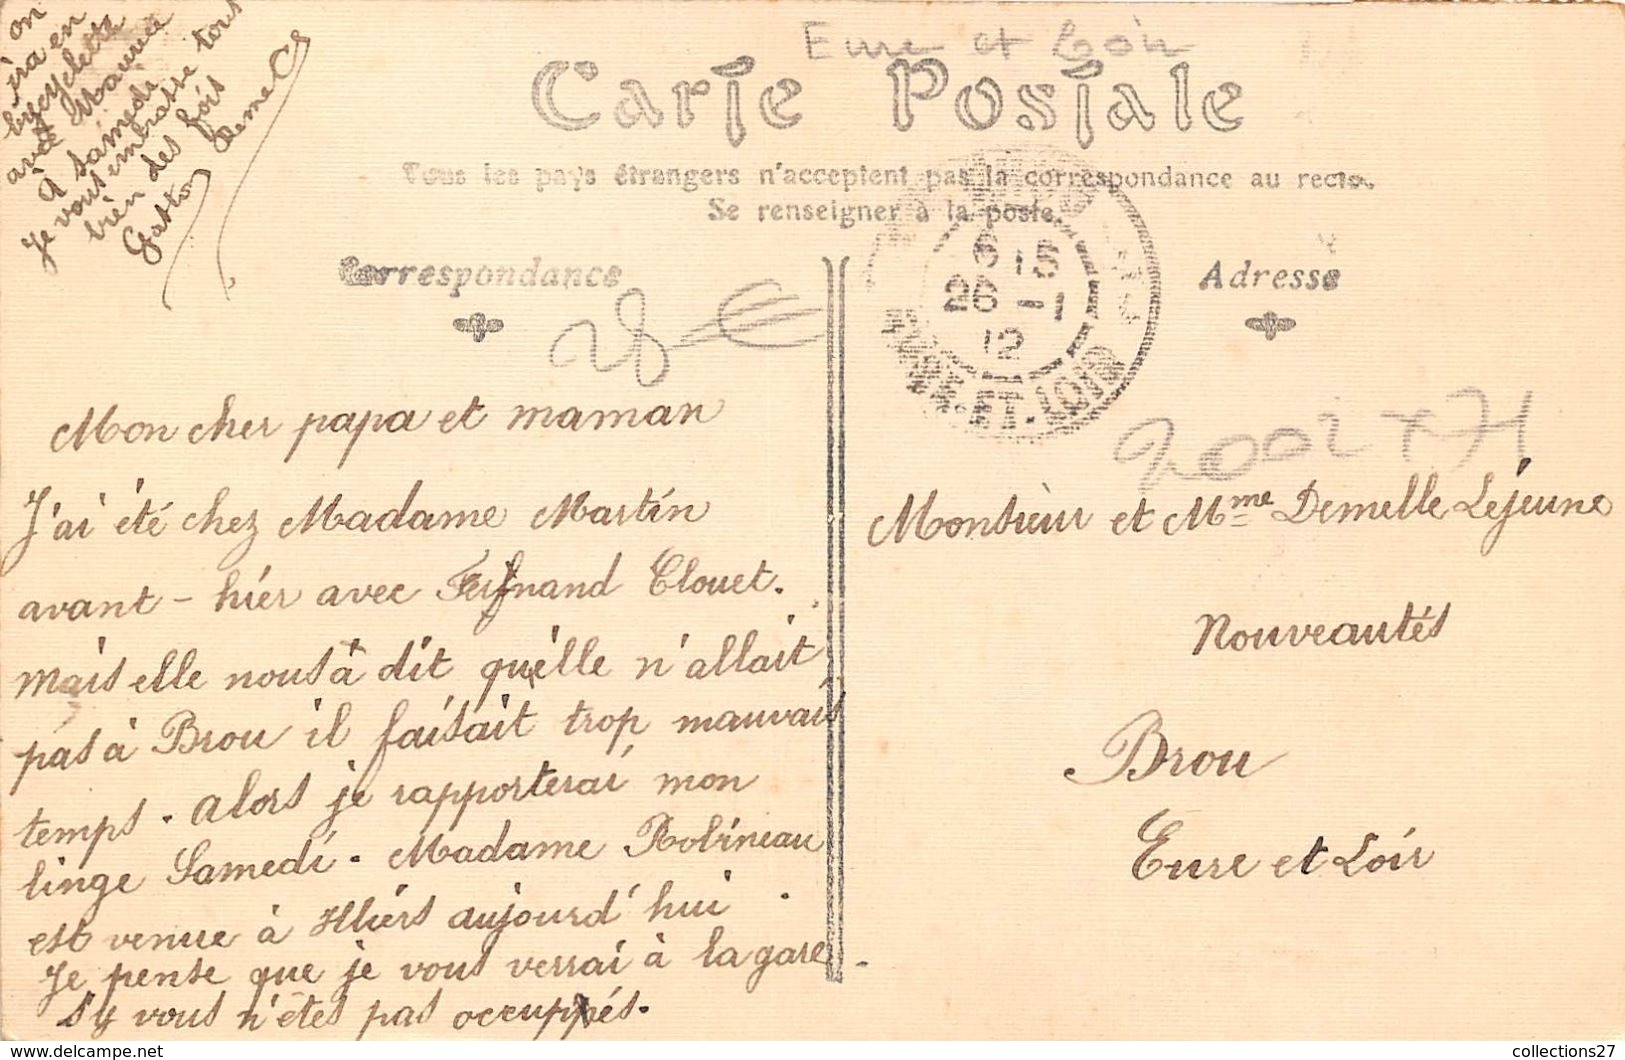 Eure et Loir
Carte Postale
Tous les pays étrangers n'acceptent pas la correspondance au recto.
Se renseigner à la poste.
Correspondance
Adresse
3 15
26 -1
12
EURE-ET-LOIR
28
Mon cher papa et maman
J'ai été chez Madame Martin
avant-hier avec Fernand Clouet.
mais elle nous à dit qu'elle n'allait
pas à Brou il faisait trop mauvais
temps. alors je rapporterai mon
linge Samedi. Madame Robineau
est venue à Illiers aujourd'hui
Je pense que je vous verrai à la gare
s'y vous n'êtes pas occuppés.
on
ira en
bycyclette
avec Maurice
à samedi
Je vous embrasse tous
bien des fois
Gaston Deme
Monsieur et Mme Demelle Lejeune
Nouveautés
Brou
Eure et Loir
collections27